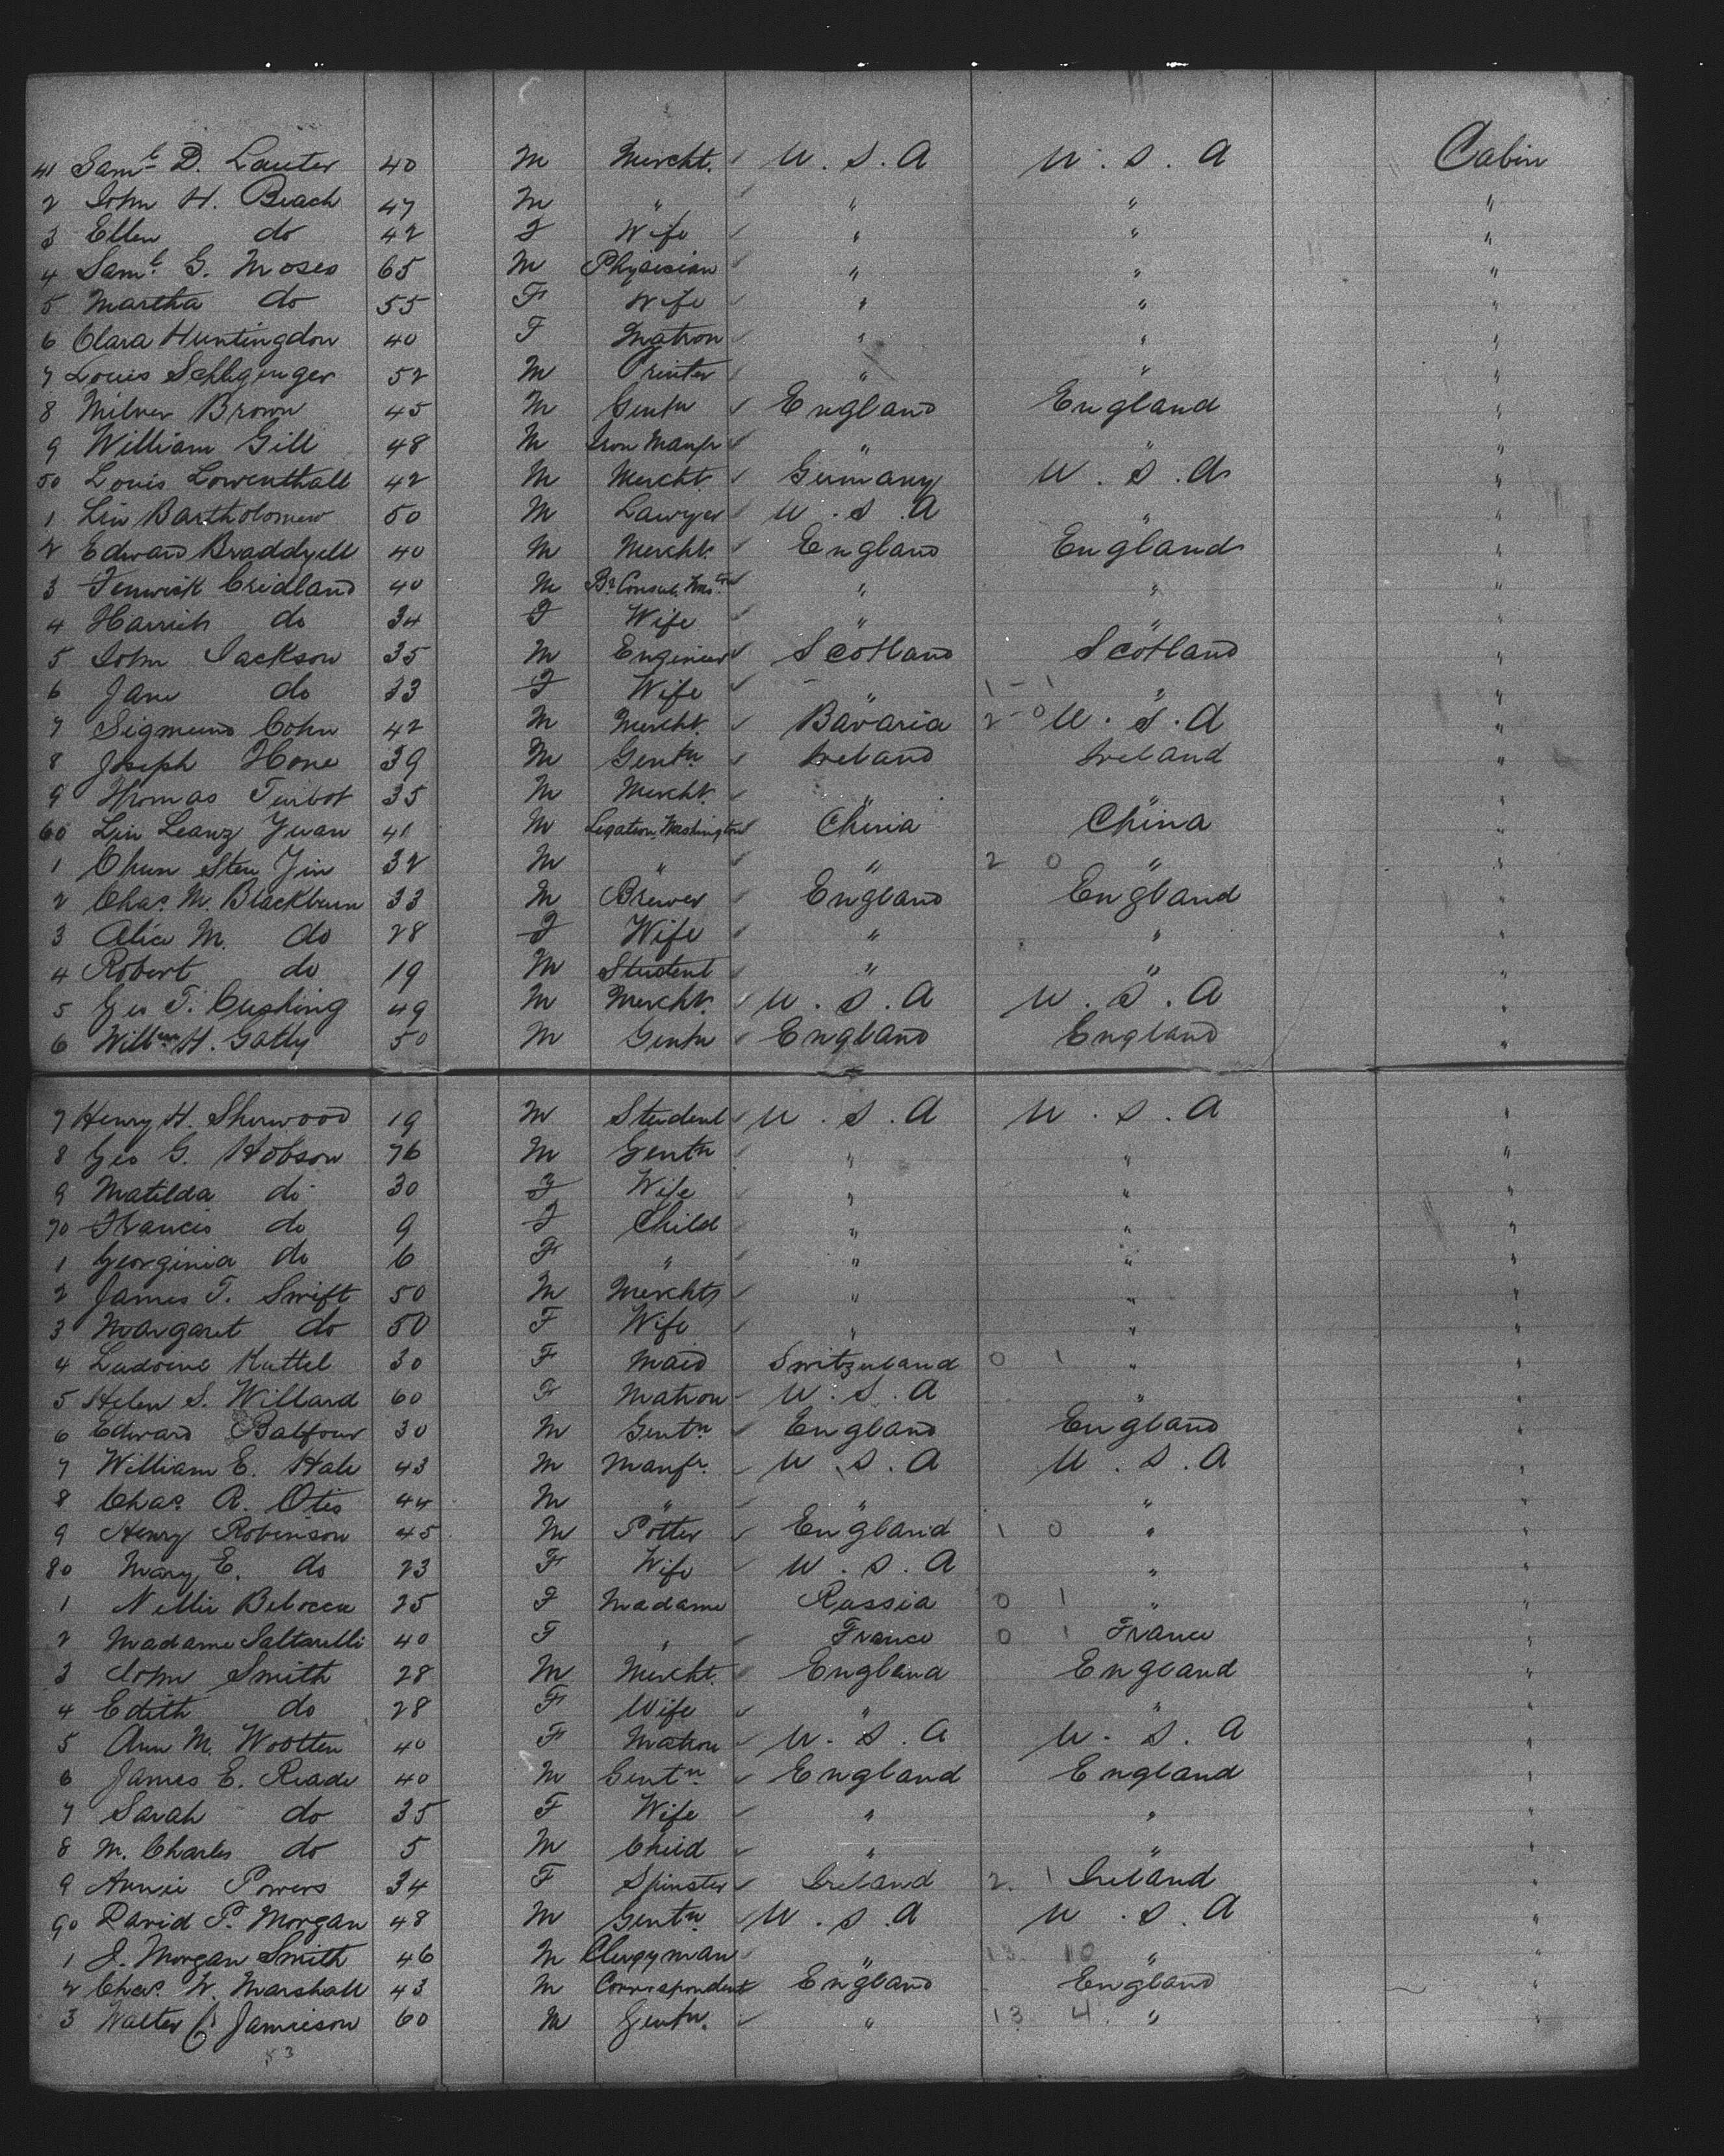 41 Saml D. Lauter 40 M Mercht. U.S.A U.S.A Cabin
2 John H. Beach 47 M " " " "
3 Ellen do 42 F Wife " " "
4 Saml G. Moses 65 M Physician " " "
5 Martha do 55 F Wife " " "
6 Clara Huntingdon 40 F Matron " " "
7 Louis 52 M Printer " " "
8 Milner Brown 45 M Gentn England England "
9 William Gill 48 M Iron Manfr " " "
50 Louis Lowenthall 42 M Mercht. Germany U.S.A "
1 Lin Bartholomew 50 M Lawyer U.S.A " "
2 Edward Braddyell 40 M Mercht. England England "
3 Fenwick Cridland 40 M Br Consul " " "
4 Harriet do 34 F Wife " " "
5 John Jackson 35 M Engineer Scotland Scotland "
6 Jane do 33 F Wife " 1 - 1 " "
7 Sigmund Cohn 42 M Mercht. Bavaria 2 - 0 U.S.A "
8 Joseph Hone 39 M Gentn Ireland Ireland "
9 Thomas Turbot 35 M Mercht. " " "
60 Lin Leanz Yuan 41 M Legation, Washington China China "
1 Chun Sten Yin 32 M " " 2 0 " "
2 Chas. M. Blackburn 33 M Brewer England England "
3 Alice M. do 28 F Wife " " "
4 Robert do 19 M Student " " "
5 Geo T. Cushing 49 M Mercht. U.S.A U.S.A "
6 Willm H. Gatty 50 M Gentn England England "
7 Henry H. Sherwood 19 M Student U.S.A U.S.A "
8 Geo G. Hobson 76 M Gentn " " "
9 Matilda do 30 F Wife " " "
70 Francis do 9 F Child " " "
1 Georginia do 6 F " " " "
2 James T. Swift 50 M Mercht " " "
3 Margaret do 50 F Wife " " "
4 Ludovine Kuttel 30 F Maid Switzerland 0 1 " "
5 Helen S. Willard 60 F Matron U.S.A " "
6 Edward Balfour 30 M Gentn England England "
7 William E. Hale 43 M Manfr. U.S.A U.S.A "
8 Chas. R. Otis 44 M " " " "
9 Henry Robinson 45 M Potter England 1 0 " "
80 Mary E. do 23 F Wife U.S.A " "
1 Nellie Belocca 25 F Madame Russia 0 1 " "
2 Madame Saltarelli 40 F " France 0 1 France "
3 John Smith 28 M Mercht. England England "
4 Edith do 28 F Wife " " "
5 Ann M. Wootten 40 F Matron U.S.A U.S.A "
6 James E. Reade 40 M Gentn England England "
7 Sarah do 35 F Wife " " "
8 M. Charles do 5 M Child " " "
9 Annie Powers 34 F Spinster Ireland 2. 1 Ireland "
90 David P. Morgan 48 M Gentn. U.S.A U.S.A "
1 J. Morgan Smith 46 M Clergyman " 13 10 " "
2 Chas. W. Marshall 43 M Correspondent England England "
3 Walter C. Jamieson 60 M Gentn. " 13 4. " "
53